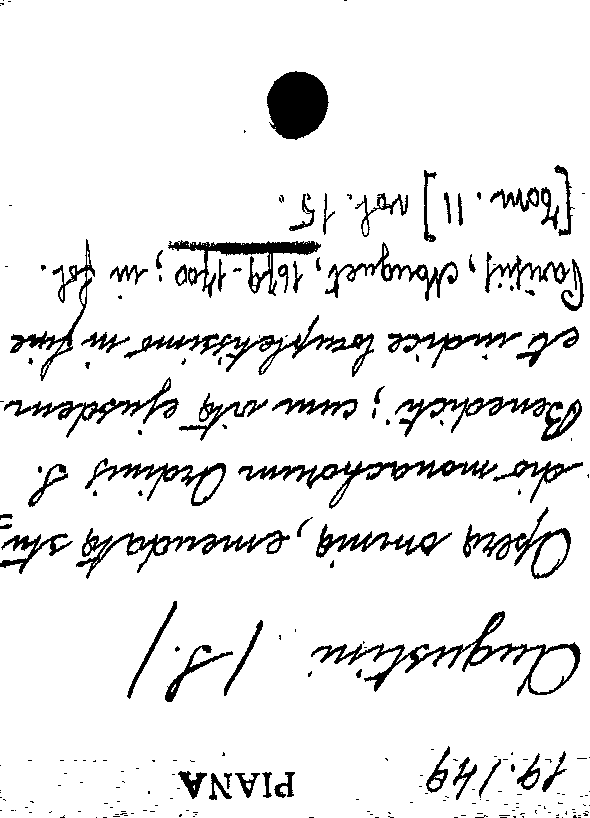 19.149 PIANA
Augustini (S.)
Opera omnia, emendata stu
dio monachorum Ordinis S.
Benedicti; cum vita ejusdem
et indice completissimo in fine
Parisiis, Muguet, 1679-1700; in fol.
[Tom. 11] vol. 15.